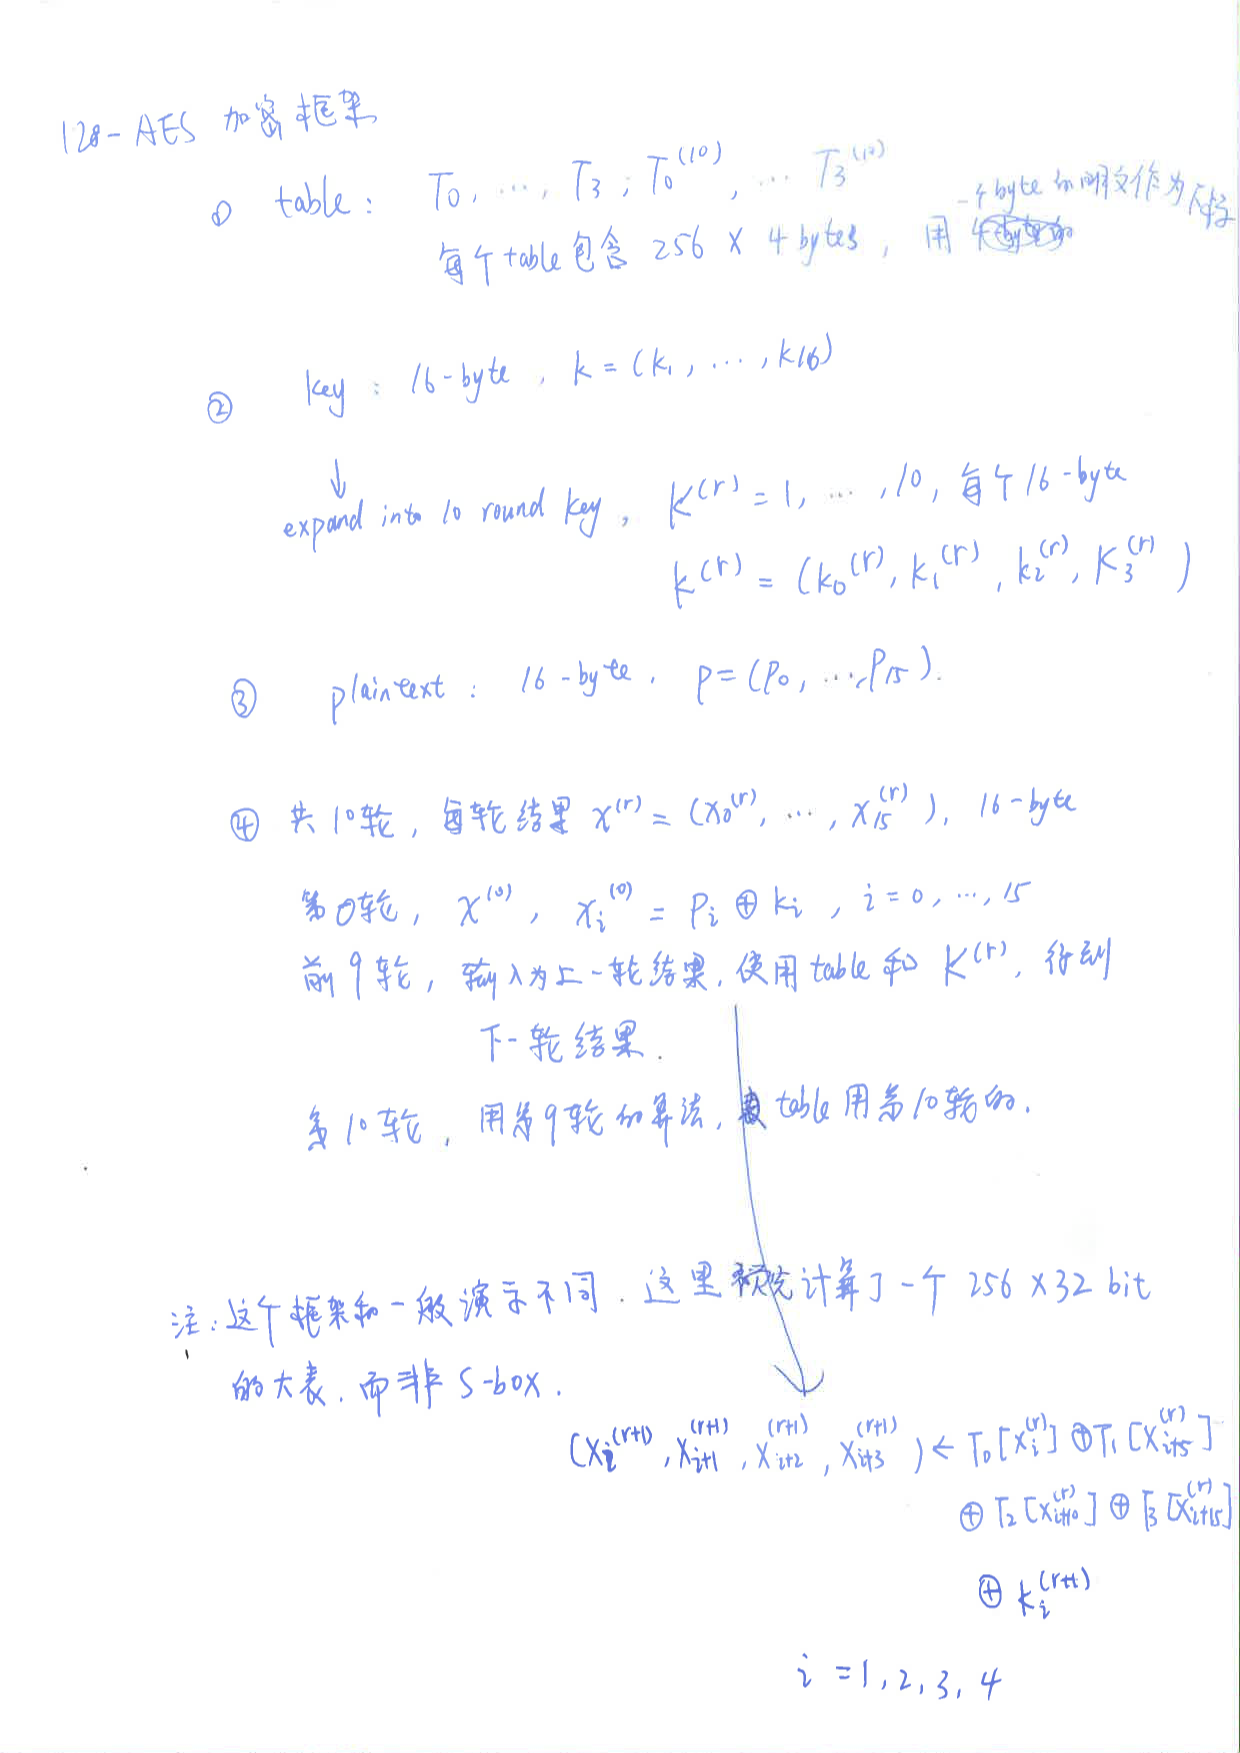 128-AES 加密框架
① table: T₀, ..., T₃; T₀⁽¹⁰⁾, ... T₃⁽¹⁰⁾
一4 byte的明文作为下标
每个table包含 256 × 4 bytes, 用
② key: 16-byte, k = (k₁, ..., k₁₆)
↓
expand into 10 round key, K⁽ʳ⁾ = 1, ..., 10, 每个16-byte
k⁽ʳ⁾ = (k₀⁽ʳ⁾, k₁⁽ʳ⁾, k₂⁽ʳ⁾, K₃⁽ʳ⁾)
③ plaintext: 16-byte. p = (p₀, ..., p₁₅).
④ 共10轮, 每轮结果 x⁽ʳ⁾ = (x₀⁽ʳ⁾, ..., x₁₅⁽ʳ⁾), 16-byte
第0轮, x⁽⁰⁾, xᵢ⁽⁰⁾ = pᵢ ⊕ kᵢ, i = 0, ..., 15
前9轮, 输入为上一轮结果, 使用table和 K⁽ʳ⁾, 得到
下一轮结果.
第10轮, 用第9轮的算法, table用第10轮的.
注: 这个框架和一般演示不同. 这里预先计算了一个 256 × 32 bit
的大表, 而非 S-box.
(xᵢ⁽ʳ⁺¹⁾, xᵢ₊₁⁽ʳ⁺¹⁾, xᵢ₊₂⁽ʳ⁺¹⁾, xᵢ₊₃⁽ʳ⁺¹⁾) ← T₀[xᵢ⁽ʳ⁾] ⊕ T₁[xᵢ₊₅⁽ʳ⁾]
⊕ T₂[xᵢ₊₁₀⁽ʳ⁾] ⊕ T₃[xᵢ₊₁₅⁽ʳ⁾]
⊕ kᵢ⁽ʳ⁺¹⁾
i = 1, 2, 3, 4